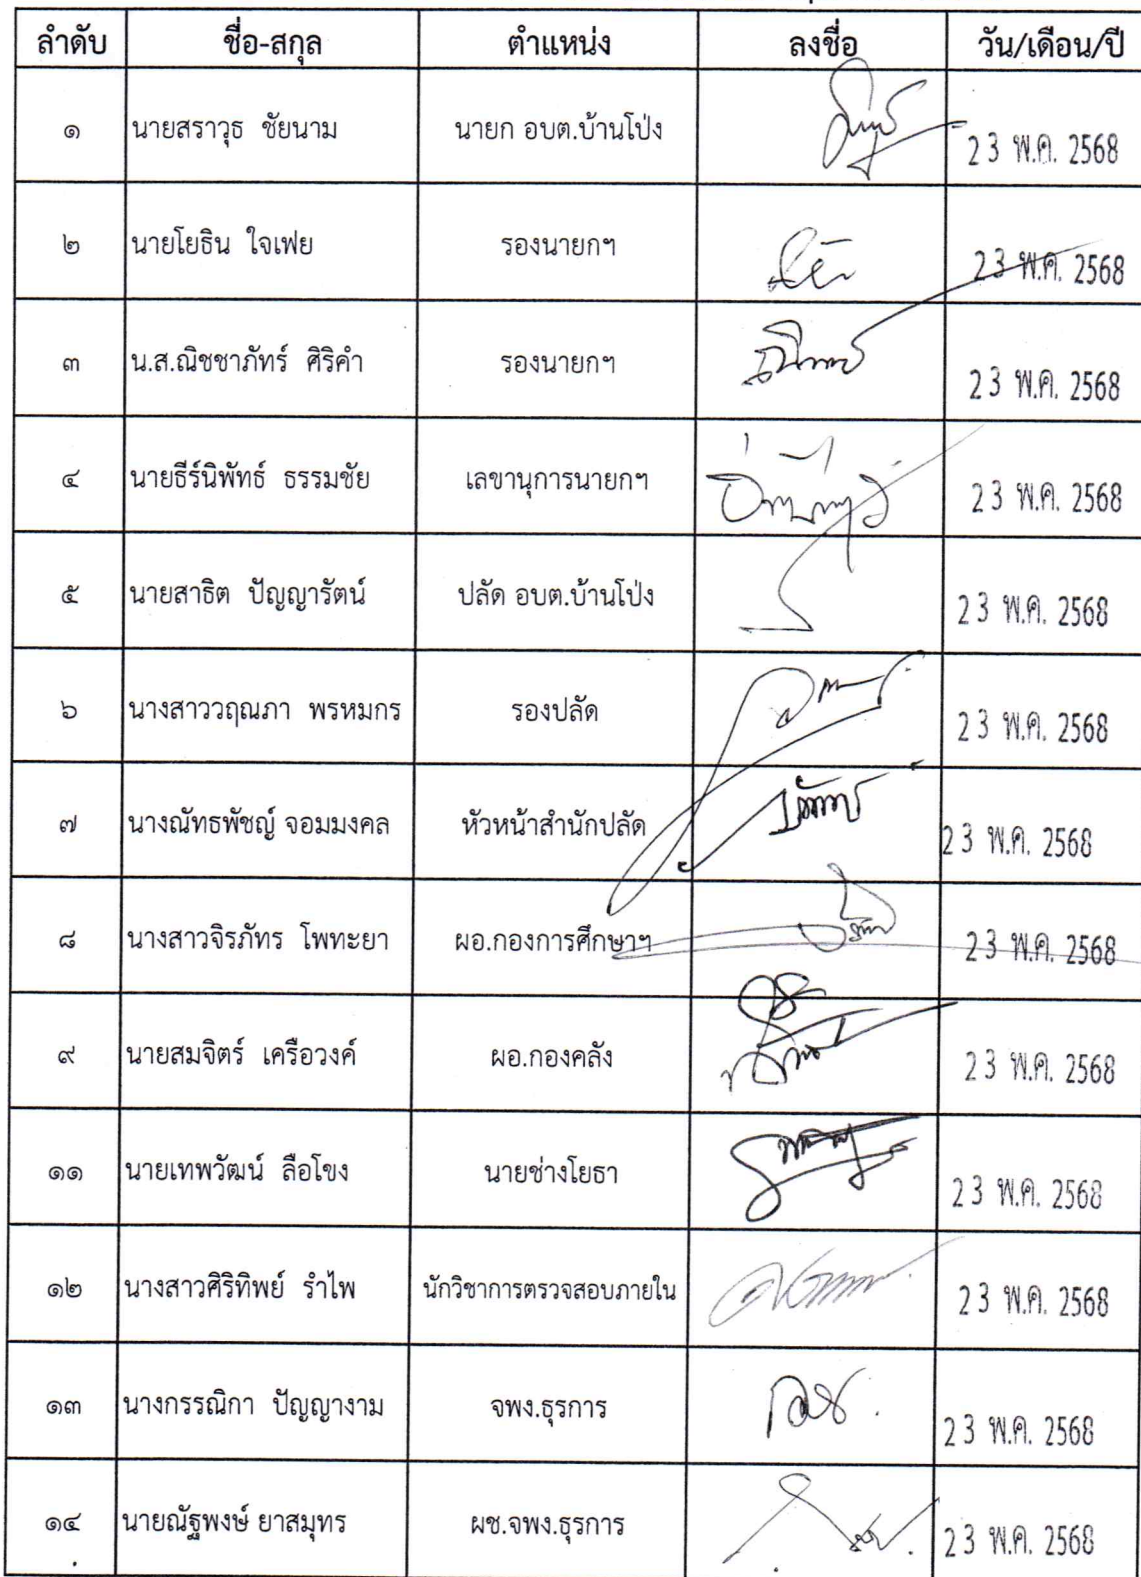 ลำดับ ชื่อ-สกุล ตำแหน่ง ลงชื่อ วัน/เดือน/ปี
๑ นายสราวุธ ชัยนาม นายก อบต.บ้านโป่ง 23 พ.ค. 2568
๒ นายโยธิน ใจเฟย รองนายกฯ 23 พ.ค. 2568
๓ น.ส.ณิชชาภัทร์ ศิริคำ รองนายกฯ 23 พ.ค. 2568
๔ นายธีร์นิพัทธ์ ธรรมชัย เลขานุการนายกฯ 23 พ.ค. 2568
๕ นายสาธิต ปัญญารัตน์ ปลัด อบต.บ้านโป่ง 23 พ.ค. 2568
๖ นางสาววฤณภา พรหมกร รองปลัด 23 พ.ค. 2568
๗ นางณัทธพัชญ์ จอมมงคล หัวหน้าสำนักปลัด 23 พ.ค. 2568
๘ นางสาวจิรภัทร โพทะยา ผอ.กองการศึกษาฯ 23 พ.ค. 2568
๙ นายสมจิตร์ เครือวงค์ ผอ.กองคลัง 23 พ.ค. 2568
๑๑ นายเทพวัฒน์ ลือโขง นายช่างโยธา 23 พ.ค. 2568
๑๒ นางสาวศิริทิพย์ รำไพ นักวิชาการตรวจสอบภายใน 23 พ.ค. 2568
๑๓ นางกรรณิกา ปัญญางาม จพง.ธุรการ 23 พ.ค. 2568
๑๔ นายณัฐพงษ์ ยาสมุทร ผช.จพง.ธุรการ 23 พ.ค. 2568